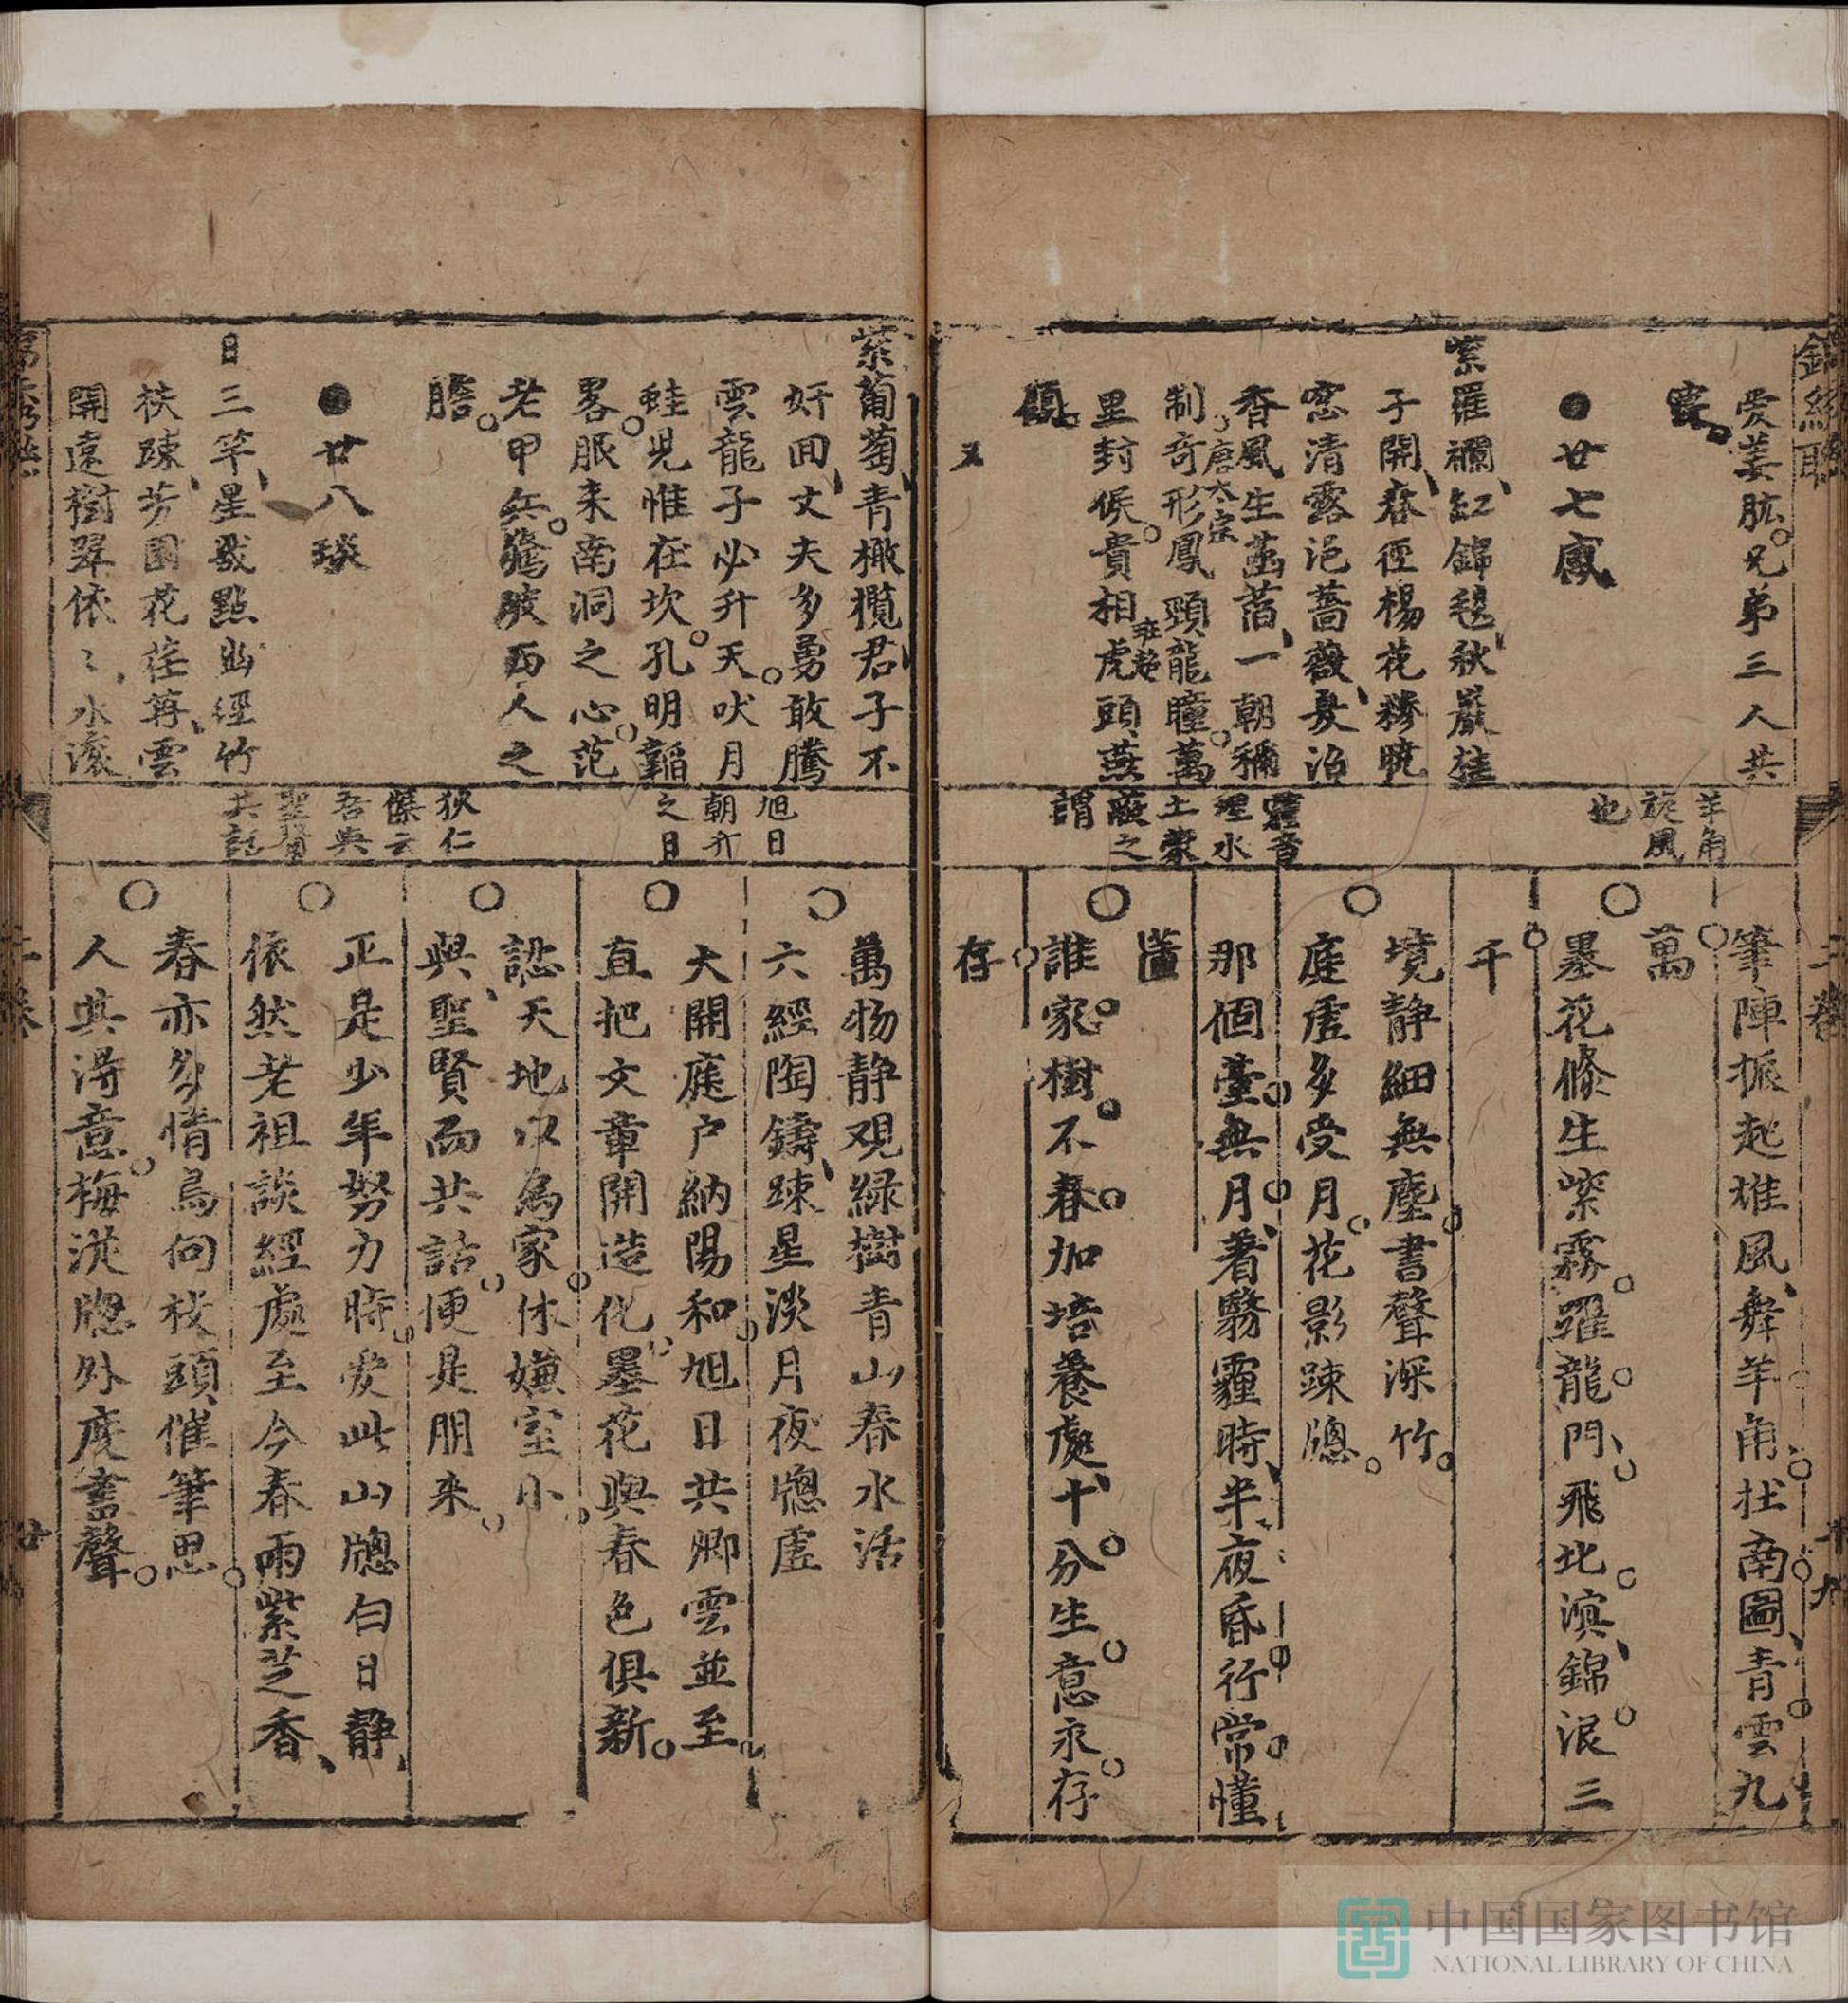 愛姜肱兄弟三人共
廿七感
紫羅襴紅錦毯秋嚴桂
子開春徑楊花糝曉
窓清露浥薔薇夏沼
香風生菡萏一朝稱
唐太宗
制奇形鳳頸龍瞳萬
班超
里封侯貴相虎頭燕
頷
又
羊角
旋風
也
霾音
埋水
土蒙
蔽之
謂
筆陣振起雄風舞羊角扶南圖青雲九
萬
墨花條生紫霧躍龍門飛北溟錦浪三
千
境静細無塵書聲深竹
庭虛多受月花影踈牕
那個臺無月着霧霾時半夜昏行常懂
誰家樹不春加培養處十分生意永存
存
二卷
十九
紫葡萄青橄欖君子不
奸回丈夫多勇敢騰
雲龍子必升天吠月
蛙兒惟在坎孔明韜
畧服来南洞之心范
老甲兵驚破西人之
膽
廿八琰
日三竿星幾點幽經竹
扶踈芳園花荏苒雲
開遠樹翠依〻水滚
旭日
朝升
之日
狄仁
傑云
吾與
聖賢
共話
萬物静观緑樹青山春水活
六經陶鑄踈星淡月夜牕虛
大開庭户納陽和旭日共卿雲並至
直把文章開造化墨花與春色俱新
認天地以為家休嫌室小
與聖賢而共話便是朋来
正是少年努力時安此山牕白日静
依然老祖談經處至今春雨紫芝香
春亦多情鳥向枝頭催筆思
人與淂意梅從牕外度書聲
廿
中国国家图书馆
NATIONAL LIBRARY OF CHINA